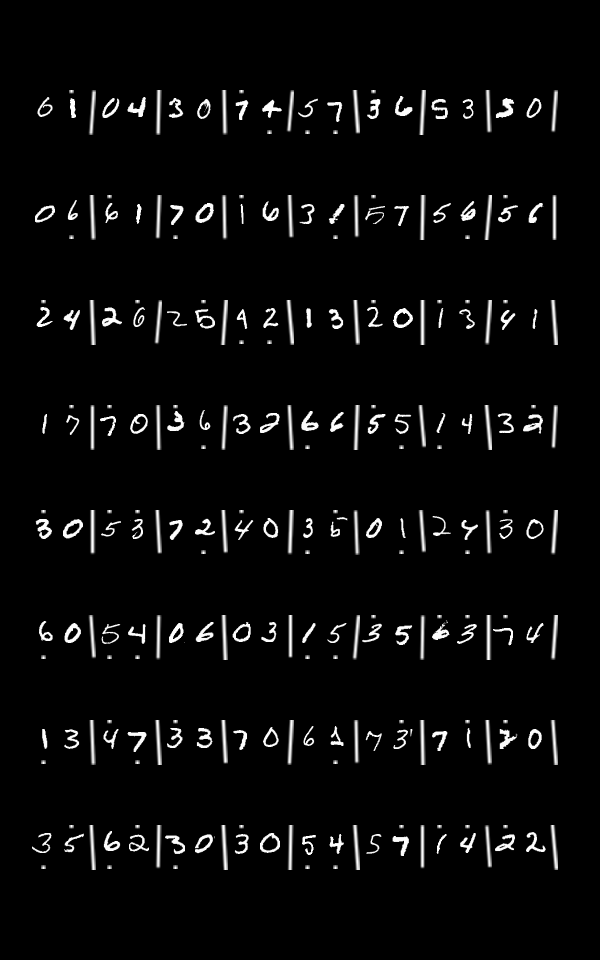 6 1̇ | 0 4 | 3 0 | 7̇ 4̣ | 5̣ 7̣ | 3̇ 6 | 5 3 | 5̇ 0 |
0 6̣̇ | 6̇ 1 | 7̣ 0 | 1̇ 6 | 3 1̣ | 5̇ 7 | 5 6̣ | 5̇ 6 |
2̇ 4 | 2 6̇ | 2 5̇ | 4̣ 2̣ | 1 3 | 2̇ 0 | 1̇ 3̇ | 4̇ 1 |
1 7̇ | 7 0 | 3̇ 6̣ | 3 2 | 6̣ 6 | 5̇ 5̣ | 1̣ 4 | 3 2̇ |
3̇ 0 | 5̇ 3̇ | 7 2̣ | 4̇ 0 | 3̣ 5̇ | 0 1̣ | 2 4̣ | 3̇ 0 |
6̣ 0 | 5̣ 4̣ | 0 6 | 0 3 | 1̣ 5̣ | 3̇ 5 | 6̇ 3̇ | 7̇ 4 |
1̣ 3 | 4̇ 7̣ | 3̇ 3 | 7 0 | 6 1̣ | 7 3̇ | 7 1̇ | 2̇ 0 |
3̣ 5̇ | 6̣ 2̇ | 3̣ 0 | 3̇ 0 | 5̣ 4̣ | 5 7̇ | 1̇ 4̇ | 2̇ 2 |